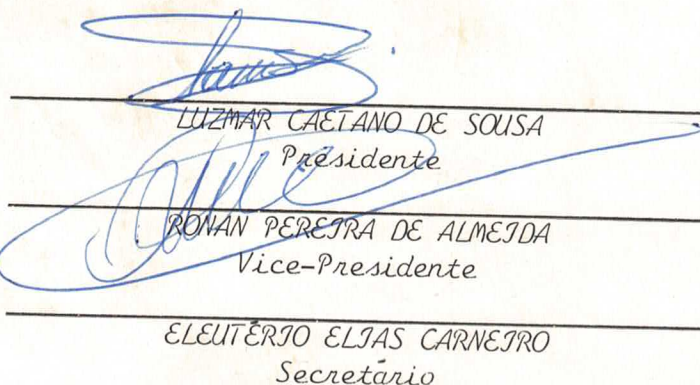 LUZMAR CAETANO DE SOUSA
Presidente
RONAN PEREIRA DE ALMEIDA
Vice-Presidente
ELEUTÉRIO ELIAS CARNEIRO
Secretário